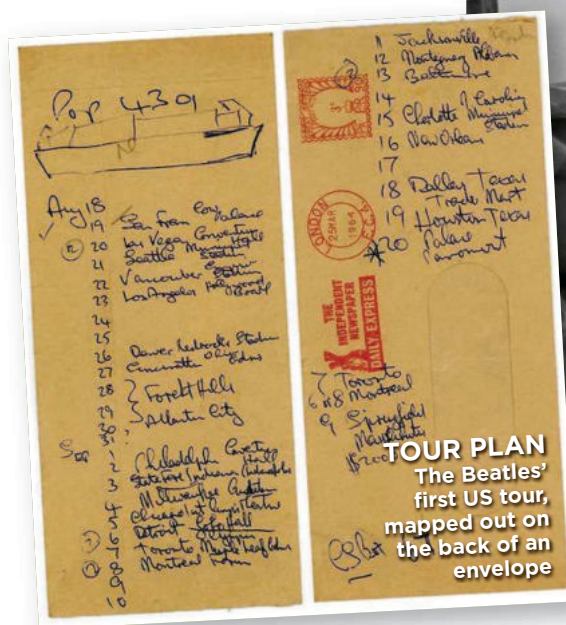 Pop 4301
Aug 18
19 San Fran Cow Palace
20 Las Vegas Convention
21 Seattle Municipal
22 Vancouver Empire Stadium
23 Los Angeles Hollywood Bowl
24
25
26 Denver Redrocks Stadium
27 Cincinnatti Gdns
28 } Forest Hills
29
30 } Atlantic City
31
Sep 1
2 Philadelph Convention Hall
3 Statefair Indiana
4 Milwaukee Auditm
5 Chicago
6 Detroit
7 Toronto Maple Leaf Gdns
8 Montreal Forum
9
10
11 Jacksonville
12 Montgomery Alabama
13 Baltimore
14
15 Charlotte N Carolina
16 New Orleans
17
18 Dallas Texas
Trade Mart
19 Houston Texas
20 Palace
Paramount
LONDON
25 MAR
1964
E.C.4
THE
INDEPENDENT
NEWSPAPER
DAILY EXPRESS
7 Toronto
8 Montreal
9 Springfield
TOUR PLAN
The Beatles'
first US tour,
mapped out on
the back of an
envelope